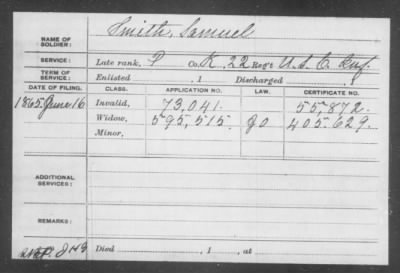 NAME OF SOLDIER: Smith, Samuel
SERVICE: Late rank, P Co. K, 22 Reg't U.S.C. Inf.
TERM OF SERVICE: Enlisted , 1 Discharged , 1
DATE OF FILING. CLASS. APPLICATION NO. LAW. CERTIFICATE NO.
1865 June 16 Invalid, 73,041. 55,872.
Widow, 595,515. go 405.629.
Minor,
ADDITIONAL SERVICES:
REMARKS:
Died , 1 , at